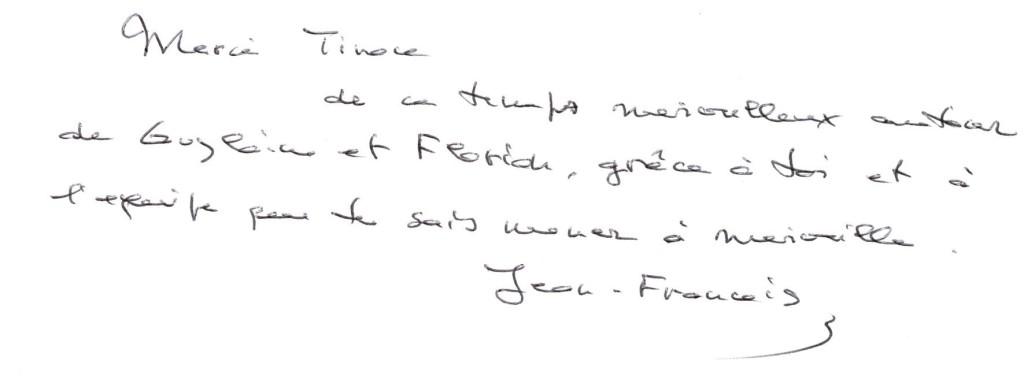 Merci Tinoce
de ce temps merveilleux autour
de Guylaine et Floride, grâce à toi et à
l'équipe que tu sais mener à merveille.
Jean-François